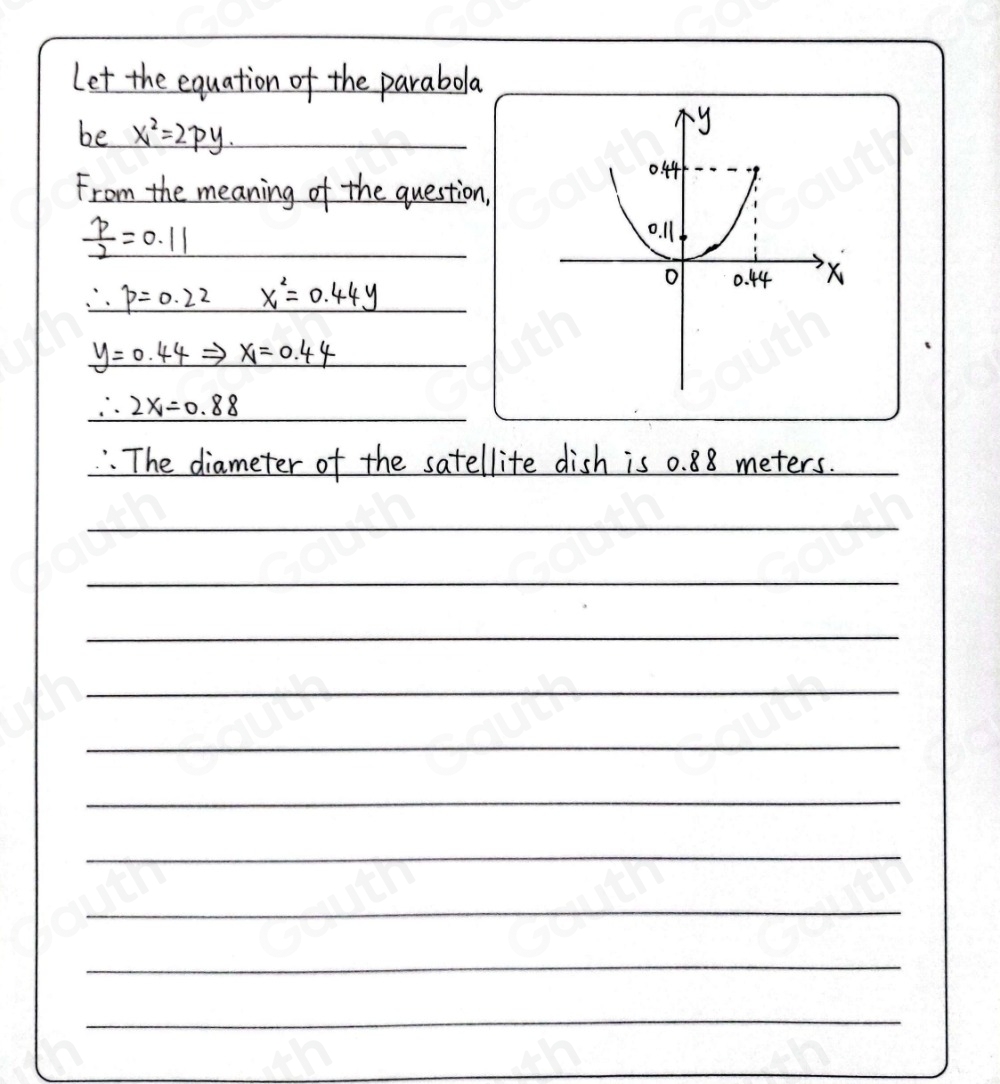 Let the equation of the parabola
be x²=2py.
From the meaning of the question,
p/2 = 0.11
∴ p=0.22 x²=0.44y
y=0.44 ⇒ x=0.44
∴ 2x=0.88
∴ The diameter of the satellite dish is 0.88 meters.
y
0.44
0.11
0
0.44
x
Gauth